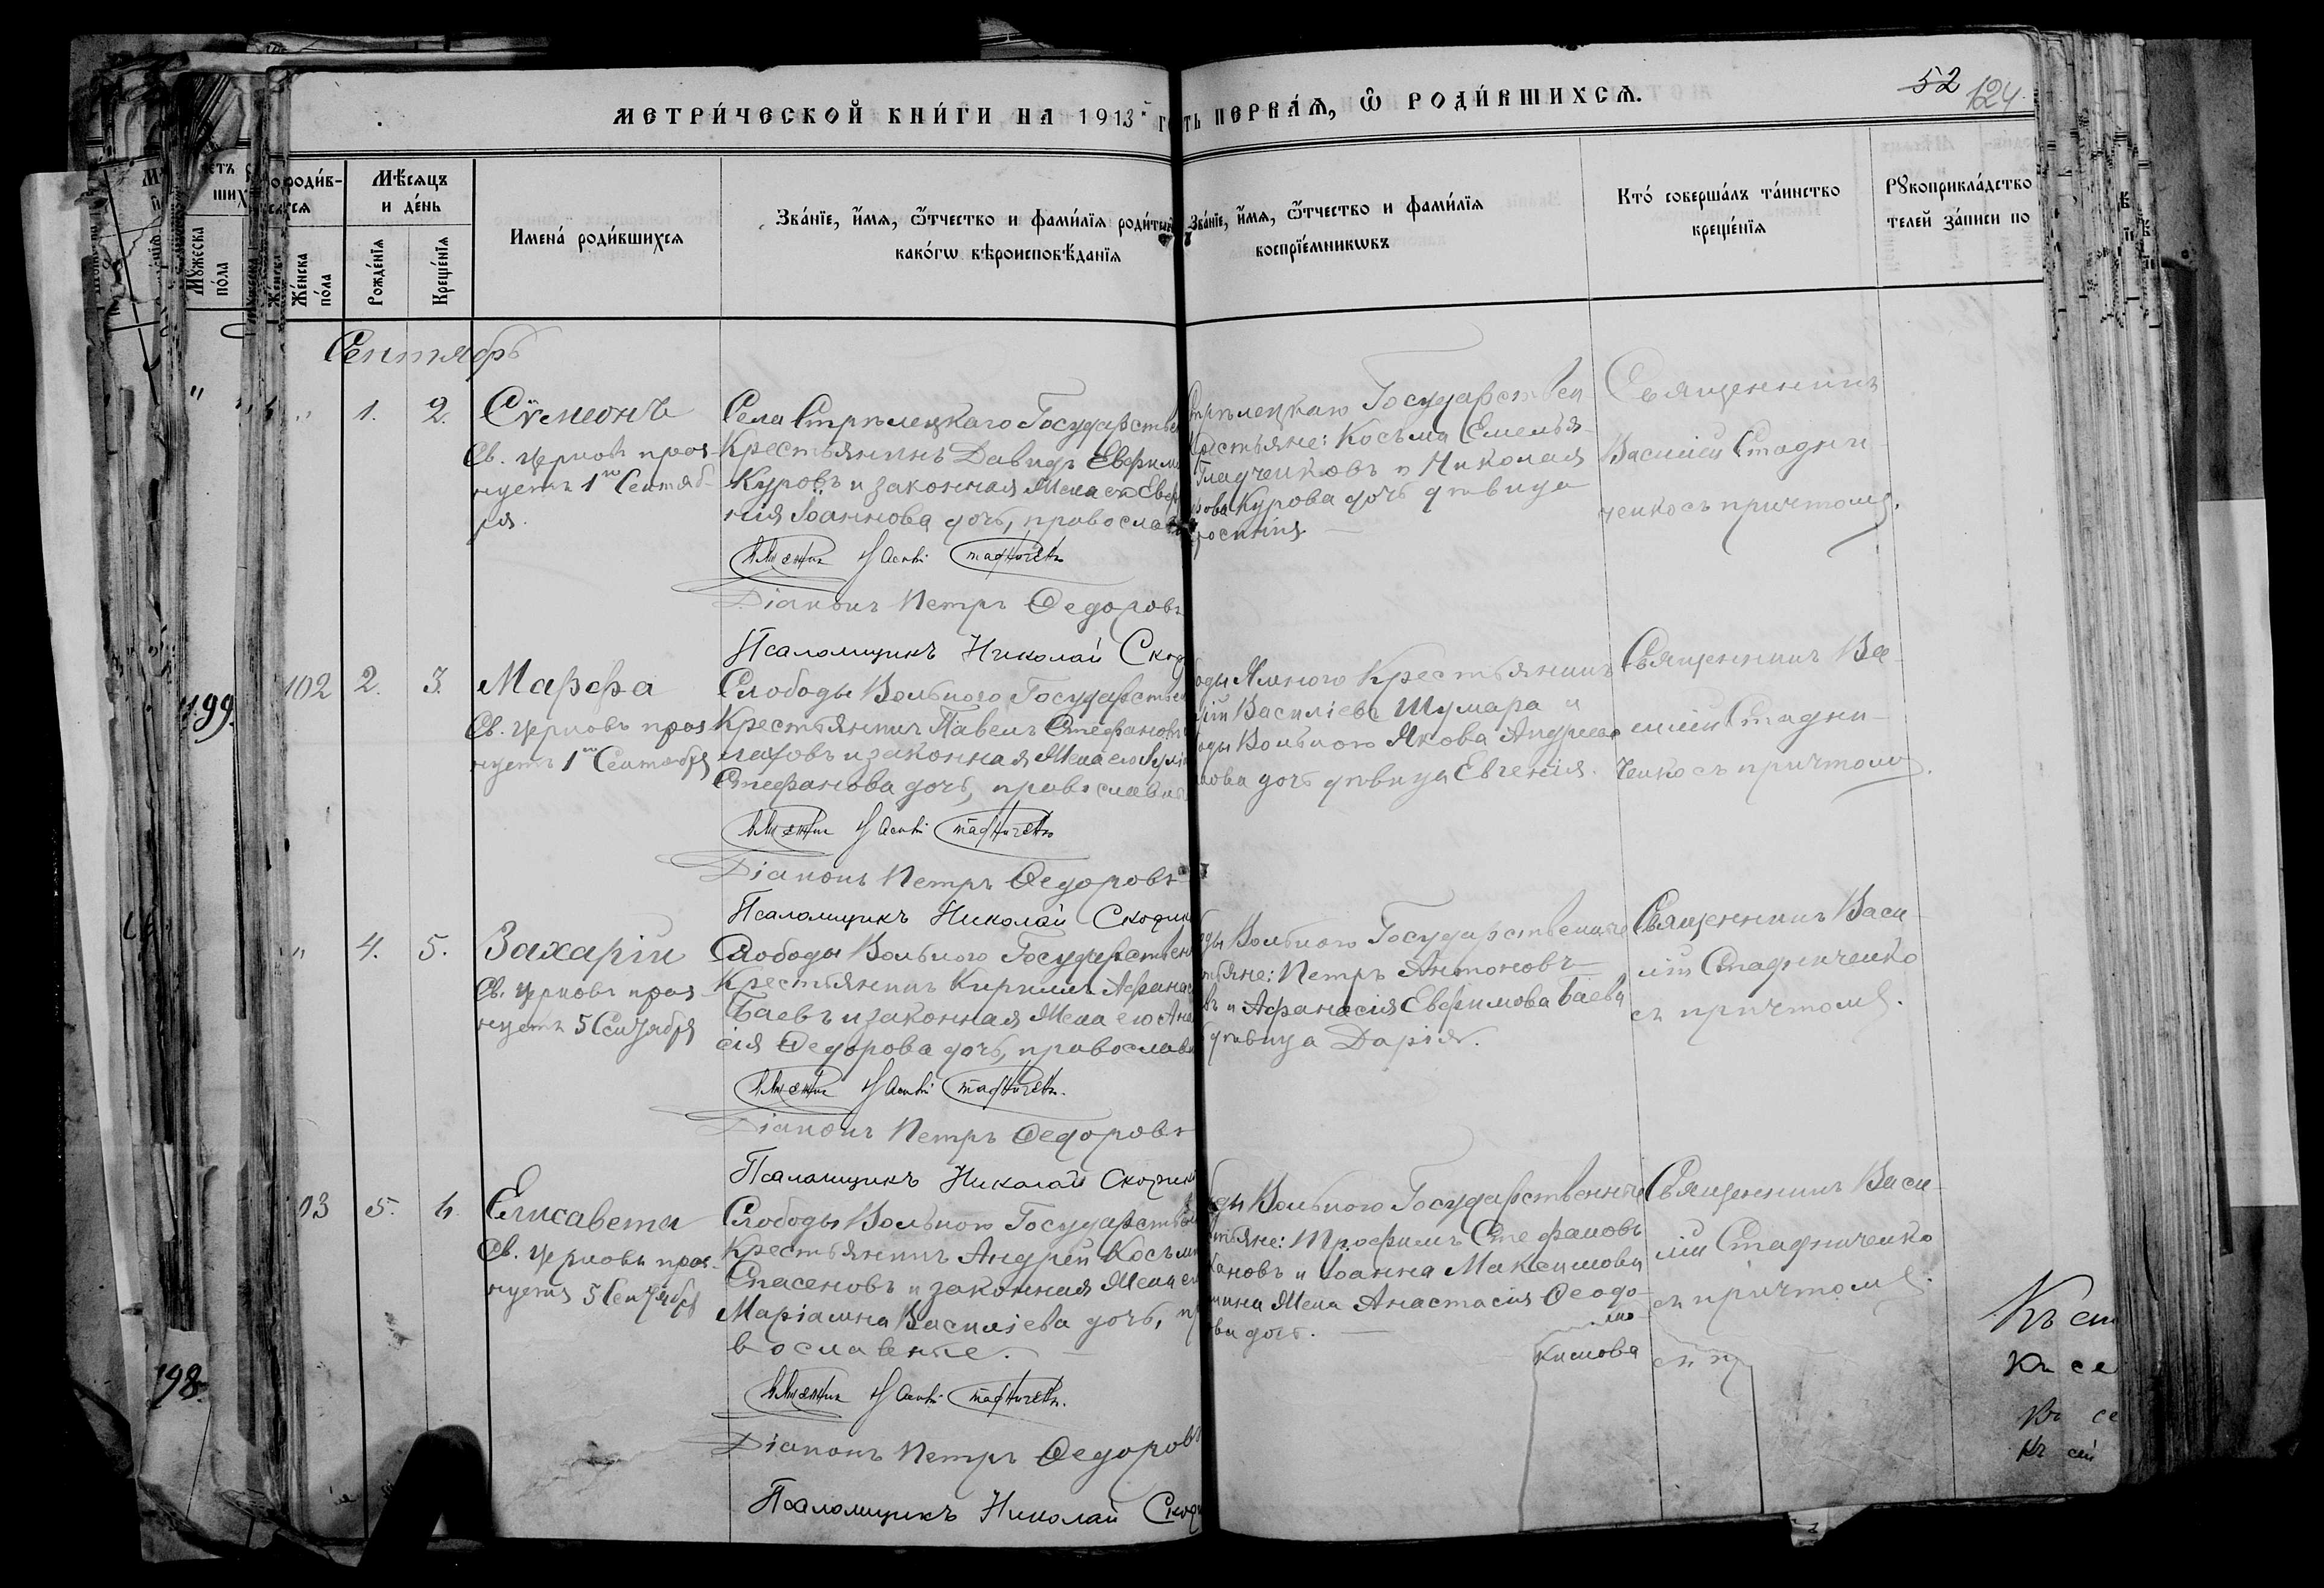 52
124
МЕТРИ́ЧЕСКОЙ КНИ́ГИ НА 1913 г
ть ПЕРВА́Я, Ѡ҆ РОДИ́ВШИХСЯ.
роди́в-
Мѣ́сяцъ
и де́нь
Же́нска
по́ла
Рожде́нїя
Креще́нїя
Имена́ роди́вшихся
Зва́нїе, и҆́мя, ѻ҆́тчество и фами́лїя роди́тел
како́гѡ вѣроисповѣ́данїя
Зва́нїе, и҆́мя, ѻ҆́тчество и фами́лїя
воспрїе́мникѡвъ
Кто́ соверша́лъ та́инство
креще́нїя
Рꙋкоприкла́дство
телей за́писи по
Мꙋжеска
по́ла
Сентябрь
„ 1. 2. Сѵмеонъ
Св. церковь праз-
нуетъ 1го Сентяб-
ря.
Села Стрѣлецкаго Государствен
Крестьянинъ Давидъ Евфими
Куровъ и законная Жена его Евф
нія Іоаннова дочь, православ
Священникъ Василій Стадниченко
Діаконъ Петръ Ѳедоровъ
Псаломщикъ Николай Скор
Стрѣлецкаго Государствен
Крестьяне: Косьма Емелья-
Гладченковъ и Николая
Курова дочь дѣвица
Священникъ
Василій Стадни-
ченко съ причтомъ.
199.
102 2. 3. Марѳа
Св. церковь праз-
нуетъ 1го Сентября
Слободы Вольного Государствен
Крестьянинъ Павелъ Стефановъ
и законная Жена его
Стефанова дочь, православн
Священникъ Василій Стадниченко
Діаконъ Петръ Ѳедоровъ
Псаломщикъ Николай Скор
оды Ямного Крестьянинъ
Василіевъ Шумара и
оды Вольного Якова Андрее
нова дочь дѣвица Евгенія.
Священникъ Ва-
силій Стадни-
ченко съ причтомъ.
„ 4. 5. Захарій
Св. церковь праз-
нуетъ 5 Сентября
Слободы Вольного Государствен
Крестьянинъ Кириллъ Афанас
Баевъ и законная Жена его Ана
сія Ѳедорова дочь, православн
Священникъ Василій Стадниченко.
Діаконъ Петръ Ѳедоровъ
Псаломщикъ Николай Скор
оды Вольного Государственные
тьяне: Петръ Антоновъ
въ и Афанасія Евфимова Баева
дѣвица Дарія.
Священникъ Васи-
лій Стадниченко
съ причтомъ.
103 5. 6. Елисавета
Св. церковь праз-
нуетъ 5 Сентября
Слободы Вольного Государствен
Крестьянинъ Андрей Косьмин
Спасеновъ и законная Жена ег
Маріамна Василіева дочь, пр
вославные.
Священникъ Василій Стадниченко.
Діаконъ Петръ Ѳедоровъ
Псаломщикъ Николай Скор
ды Вольного Государственные
тьяне: Трофимъ Стефановъ
кановъ и Іоанна Максимова
мина Жена Анастасія Ѳеодо-
ва дочь.
Священникъ Васи-
лій Стадниченко
съ причтомъ.
кимова
198.
Къ сл
Къ се
Къ се
Къ сей